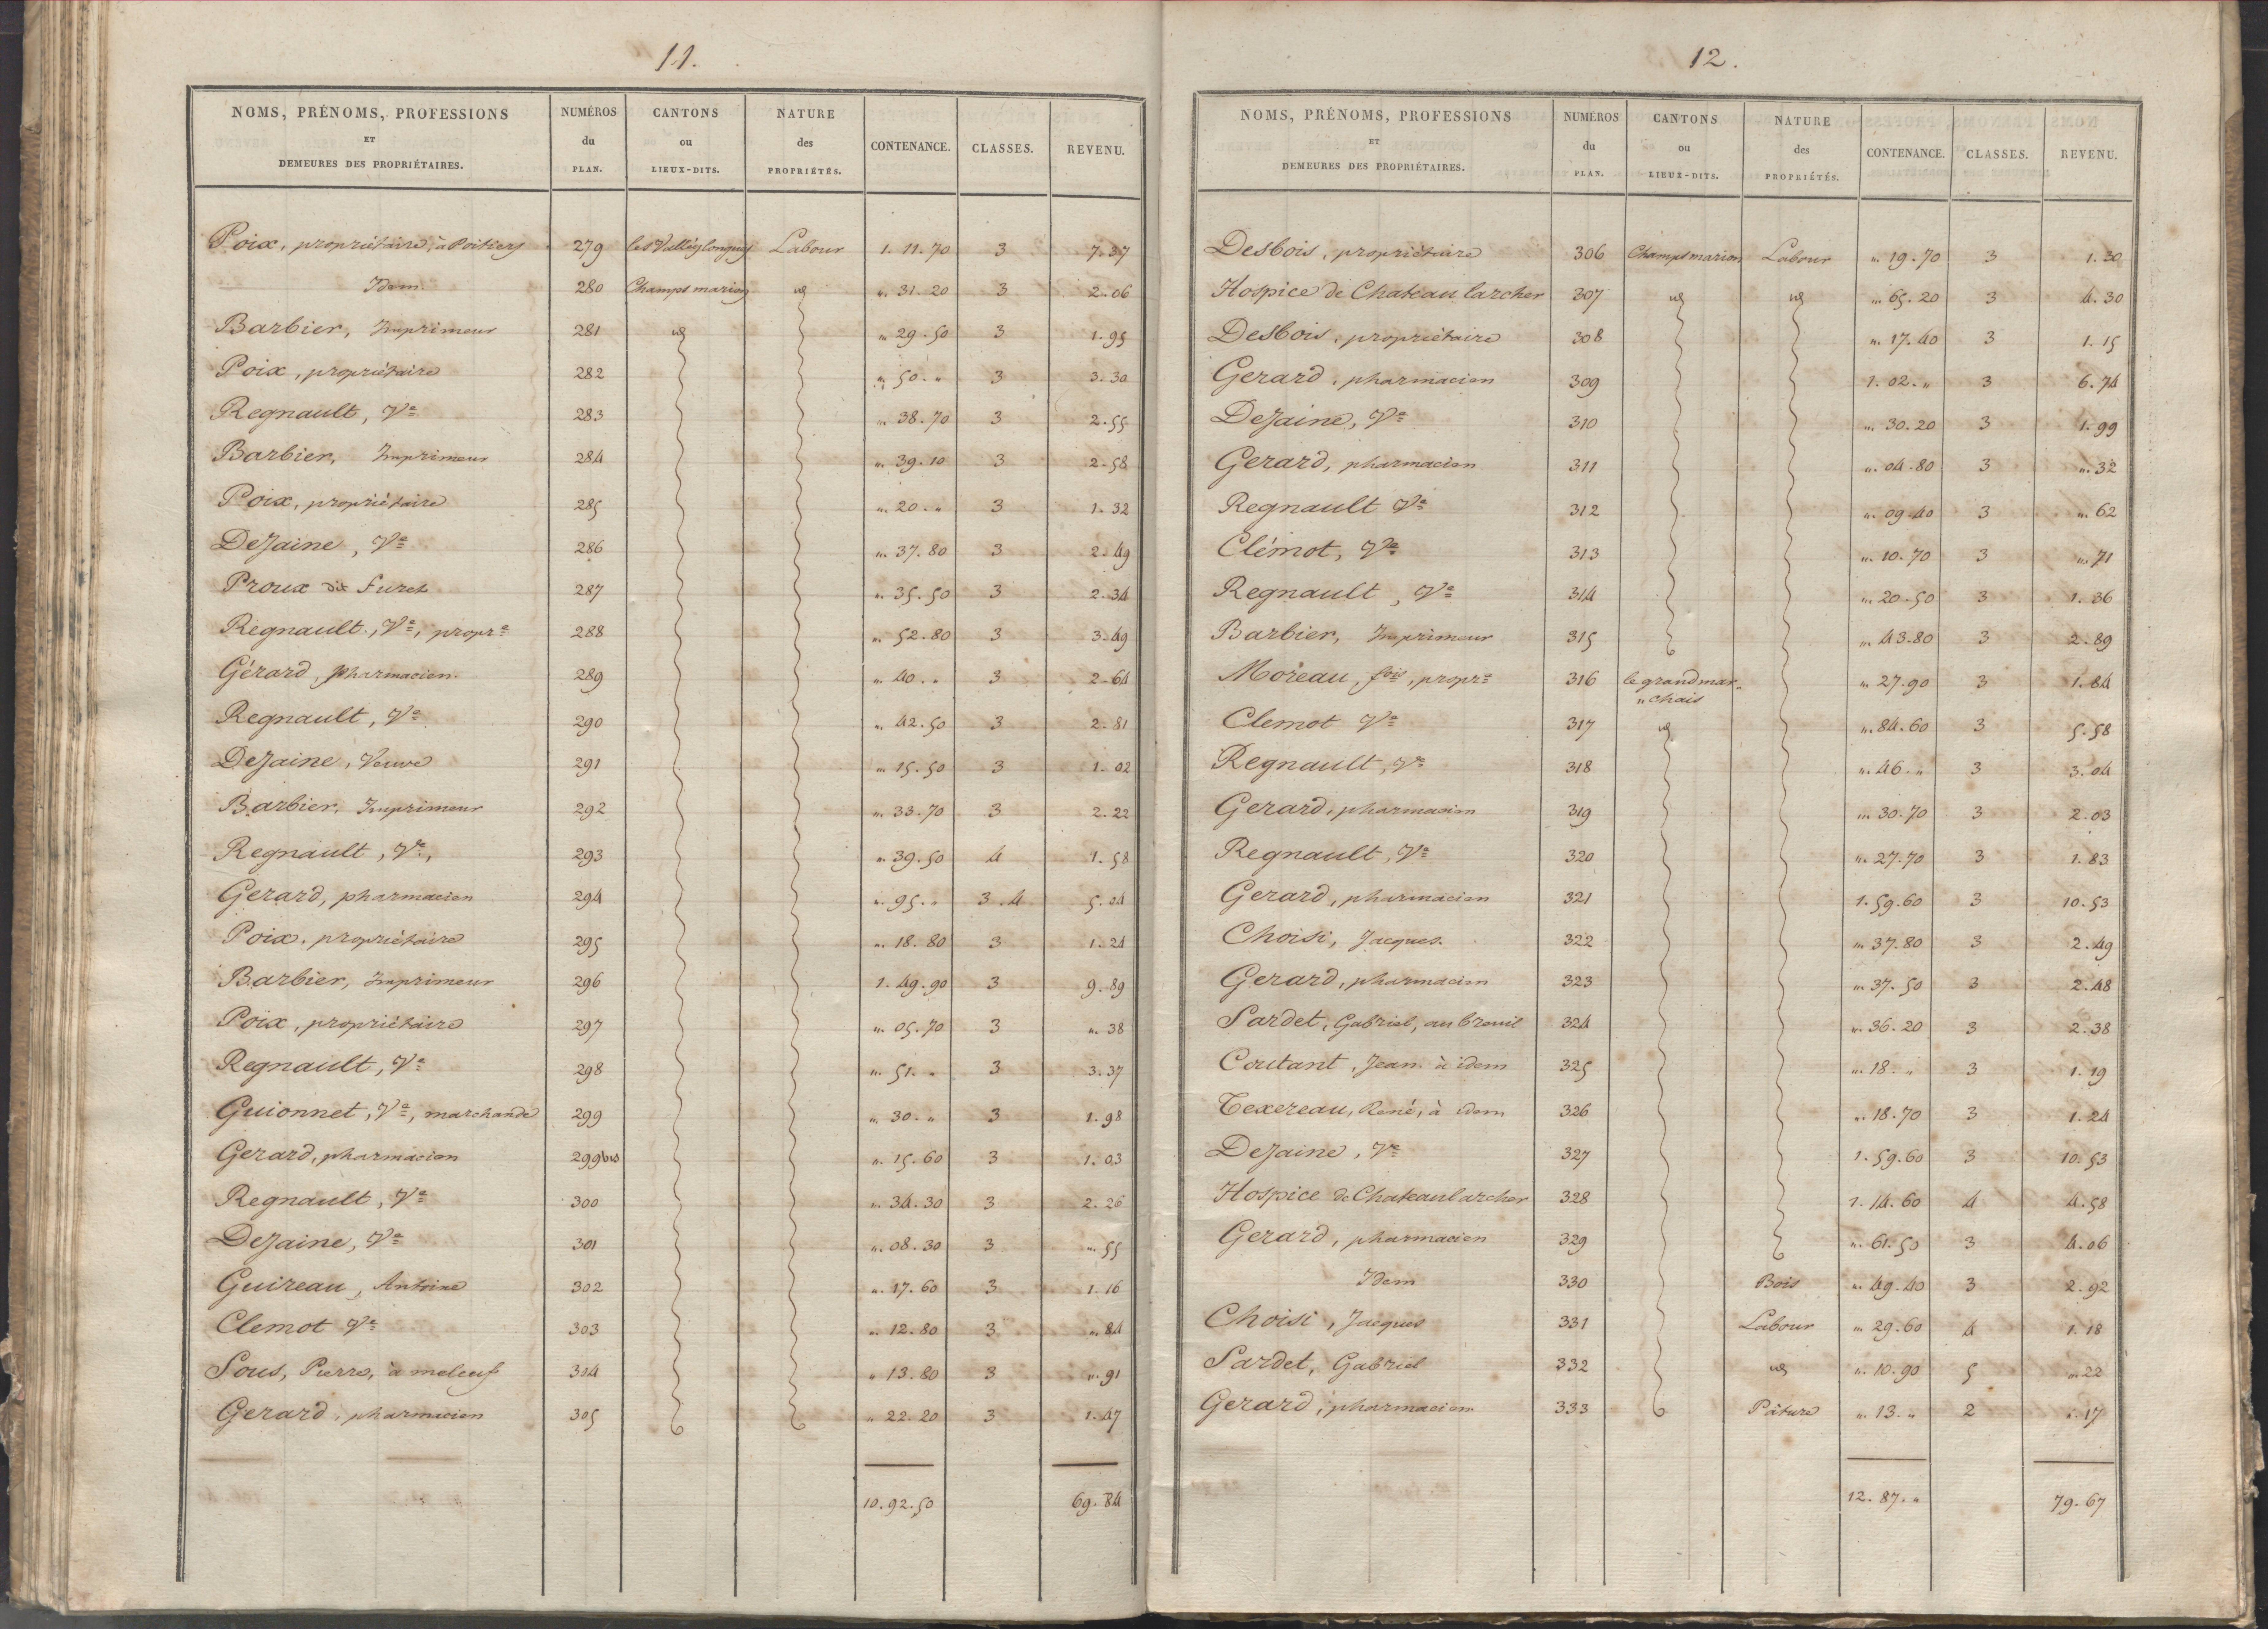 11.
NOMS, PRÉNOMS, PROFESSIONS ET DEMEURES DES PROPRIÉTAIRES. NUMÉROS du PLAN. CANTONS ou LIEUX-DITS. NATURE des PROPRIÉTÉS. CONTENANCE. CLASSES. REVENU.
Poix, propriétaire, à Poitiers 279 les Valléslongues Labour 1. 11. 70 3 7. 37
Idem. 280 Champs marion id „. 31. 20 3 2. 06
Barbier, Imprimeur 281 id „. 29. 50 3 1. 95
Poix, propriétaire 282 „. 50. „ 3 3. 30
Regnault, Ve 283 „. 38. 70 3 2. 55
Barbier, Imprimeur 284 „. 39. 10 3 2. 58
Poix, propriétaire 285 „. 20. „ 3 1. 32
Dezaine, Ve 286 „. 37. 80 3 2. 49
Proux dit Furet 287 „. 35. 50 3 2. 34
Regnault, Ve, propre 288 „. 52. 80 3 3. 49
Gérard, pharmacien. 289 „. 40. „ 3 2. 64
Regnault, Ve 290 „. 42. 50 3 2. 81
Dezaine, Veuve 291 „. 15. 50 3 1. 02
Barbier, Imprimeur 292 „. 33. 70 3 2. 22
Regnault, Ve, 293 „. 39. 50 4 1. 58
Gerard, pharmacien 294 „. 95. „ 3. 4 5. 04
Poix, propriétaire 295 „. 18. 80 3 1. 24
Barbier, Imprimeur 296 1. 49. 90 3 9. 89
Poix, propriétaire 297 „. 05. 70 3 „. 38
Regnault, Ve 298 „. 51. „ 3 3. 37
Guionnet, Ve, marchande 299 „. 30. „ 3 1. 98
Gerard, pharmacien 299 bis „. 15. 60 3 1. 03
Regnault, Ve 300 „. 34. 30 3 2. 26
Dezaine, Ve 301 „. 08. 30 3 „. 55
Guireau, Antoine 302 „. 17. 60 3 1. 16
Clemot Ve 303 „. 12. 80 3 „. 84
Sous, Pierre, à meleuf 304 „. 13. 80 3 „. 91
Gerard, pharmacien 305 „. 22. 20 3 1. 47
10. 92. 50 69. 84
12.
NOMS, PRÉNOMS, PROFESSIONS ET DEMEURES DES PROPRIÉTAIRES. NUMÉROS du PLAN. CANTONS ou LIEUX-DITS. NATURE des PROPRIÉTÉS. CONTENANCE. CLASSES. REVENU.
Desbois, propriétaire 306 Champs marion Labour „. 19. 70 3 1. 30
Hospice de Chateau larcher 307 id id „. 65. 20 3 4. 30
Desbois, propriétaire 308 „. 17. 40 3 1. 15
Gerard, pharmacien 309 1. 02. „ 3 6. 74
Dezaine, Ve 310 „. 30. 20 3 1. 99
Gerard, pharmacien 311 „. 04. 80 3 „. 32
Regnault Ve 312 „. 09. 40 3 „. 62
Clémot, Ve 313 „. 10. 70 3 „. 71
Regnault, Ve 314 „. 20. 50 3 1. 36
Barbier, Imprimeur 315 „. 43. 80 3 2. 89
Moreau, fois, propre 316 le grand mar„ „chais „. 27. 90 3 1. 84
Clemot Ve 317 id „. 84. 60 3 5. 58
Regnault, Ve 318 „. 46. „ 3 3. 04
Gerard, pharmacien 319 „. 30. 70 3 2. 03
Regnault, Ve 320 „. 27. 70 3 1. 83
Gerard, pharmacien 321 1. 59. 60 3 10. 53
Choisi, Jacques. 322 „. 37. 80 3 2. 49
Gerard, pharmacien 323 „. 37. 50 3 2. 48
Sardet, Gabriel, au breuil 324 „. 36. 20 3 2. 38
Coutant, Jean. à idem 325 „. 18. „ 3 1. 19
Texereau, René, à idem 326 „. 18. 70 3 1. 24
Dezaine, Ve 327 1. 59. 60 3 10. 53
Hospice de Chateaularcher 328 1. 14. 60 4 4. 58
Gerard, pharmacien 329 „. 61. 50 3 4. 06
Idem 330 Bois „. 49. 40 3 2. 92
Choisi, Jacques 331 Labour „. 29. 60 4 1. 18
Sardet, Gabriel 332 id „. 10. 90 5 „. 22
Gerard, pharmacien. 333 Pâture „. 13. „ 2 „. 17
12. 87. „ 79. 67